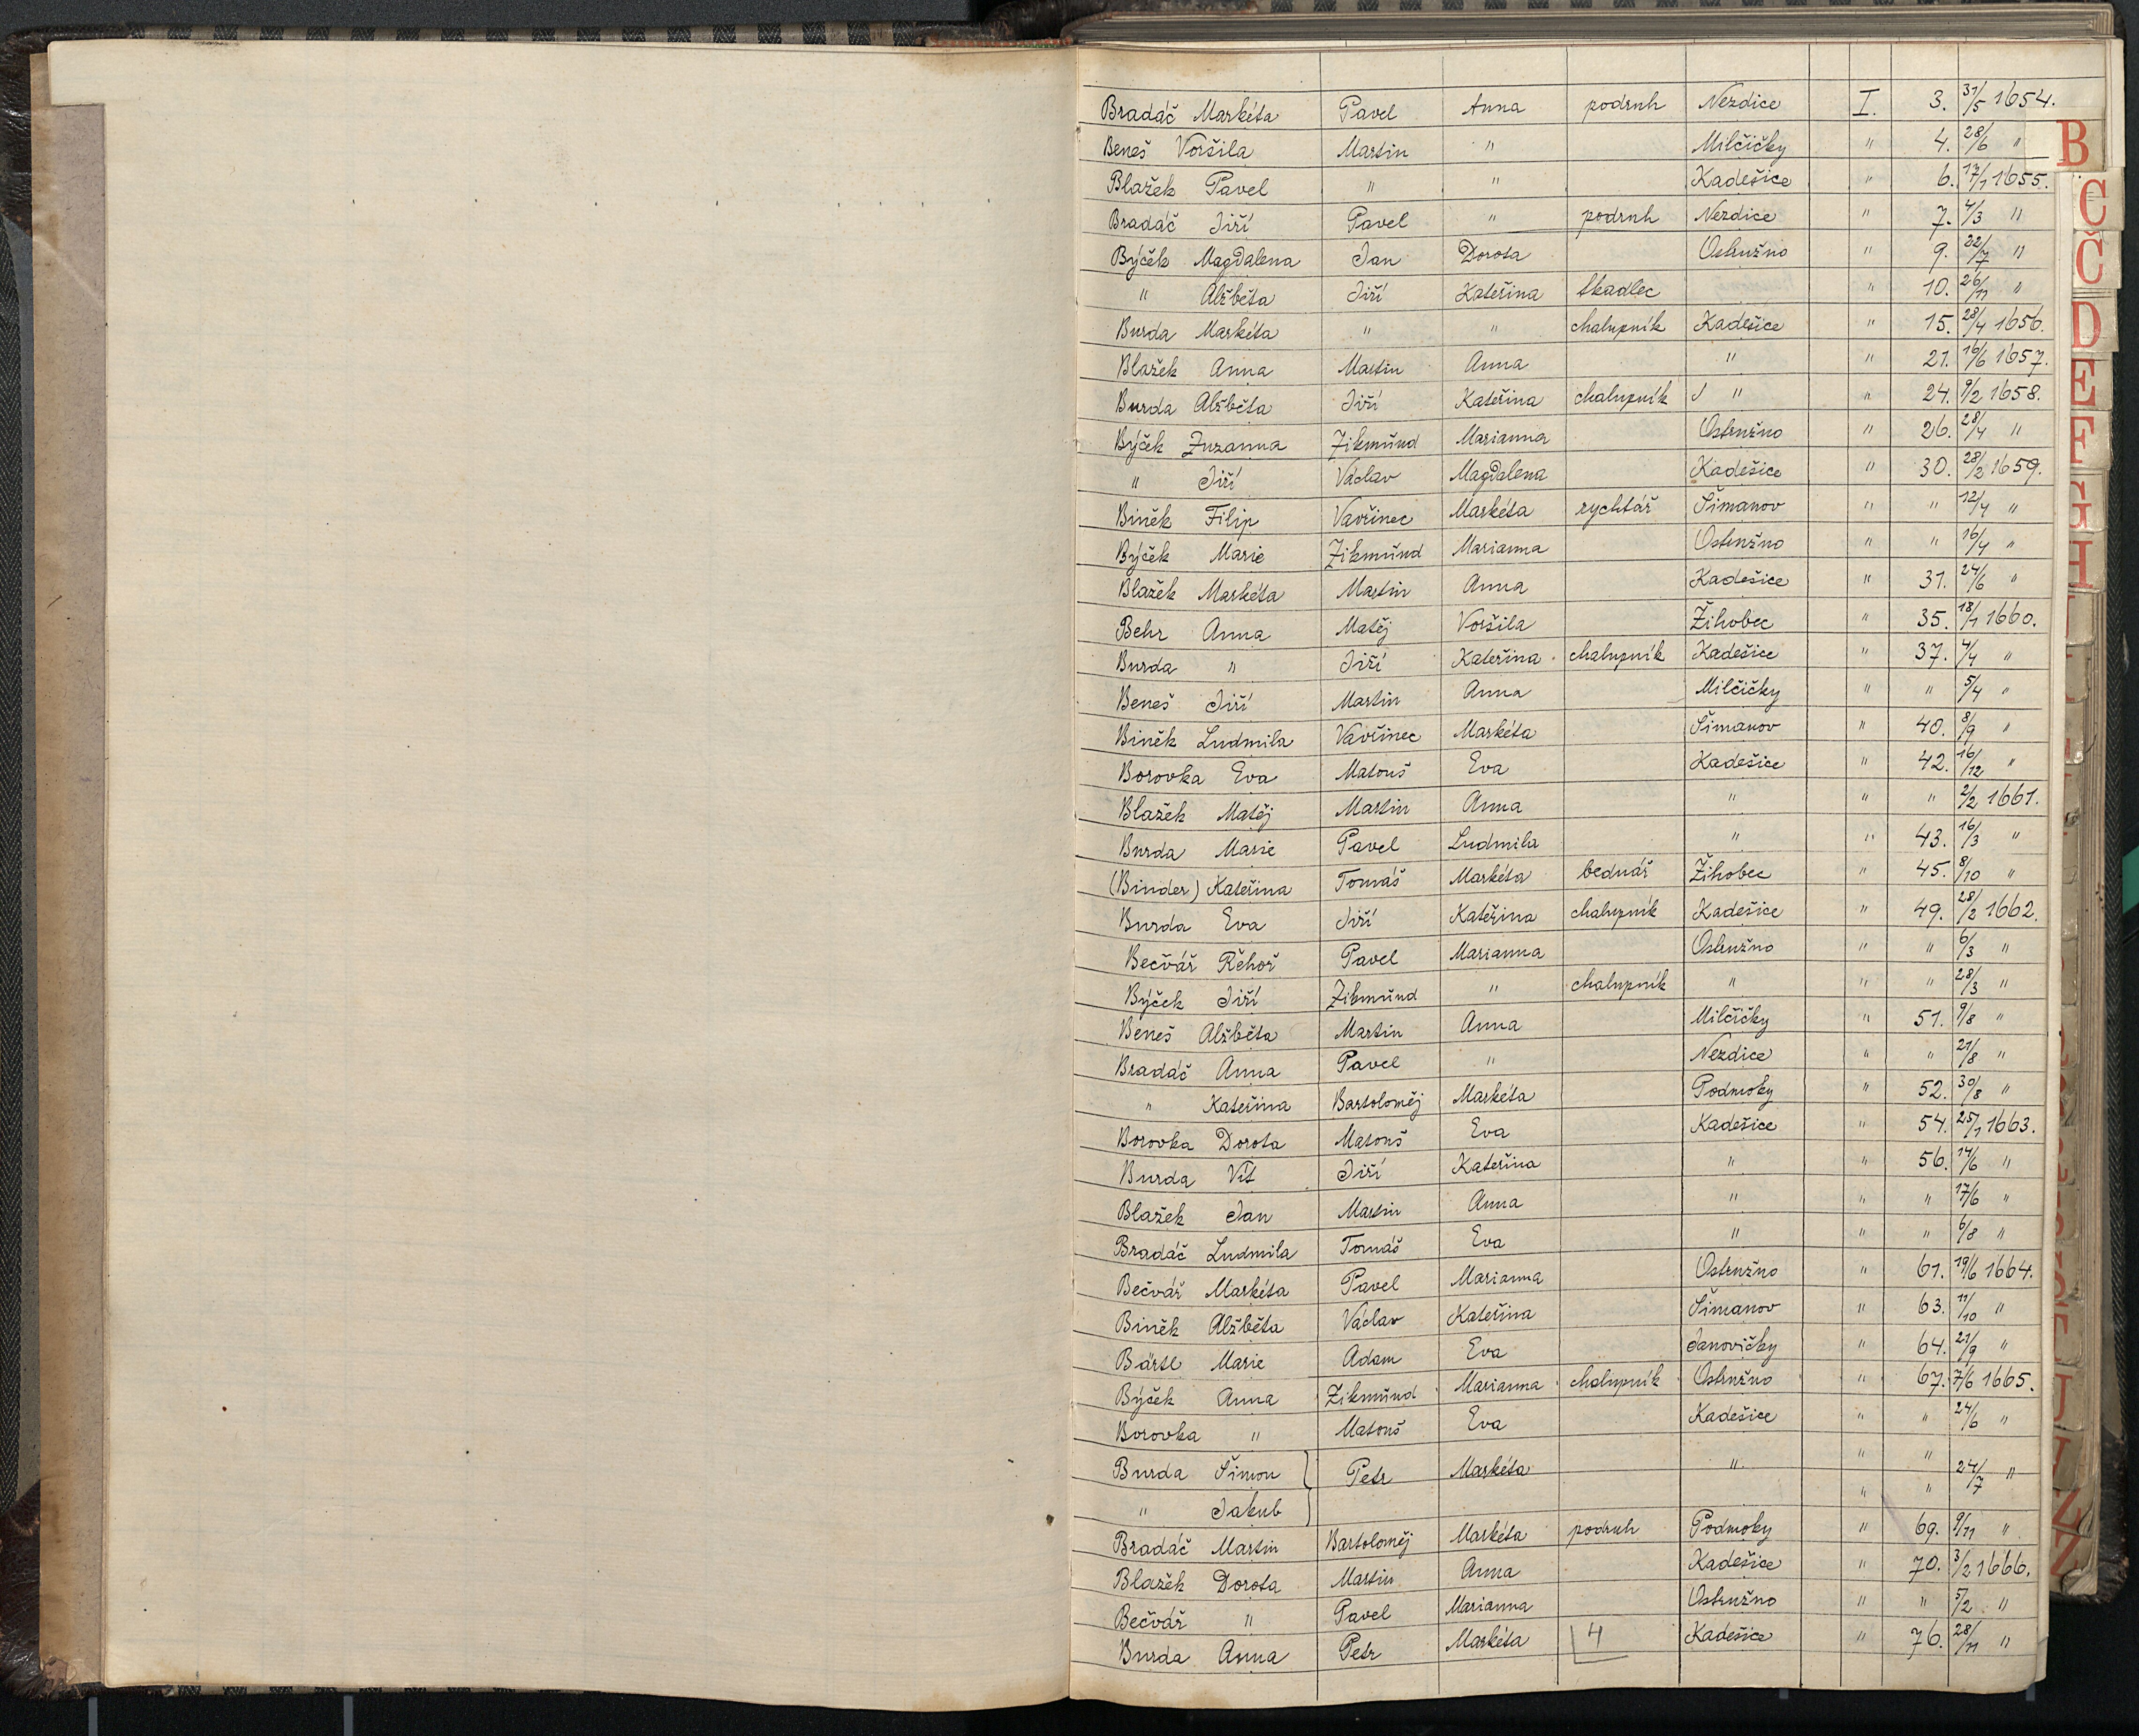 Bradáč Markéta Pavel Anna podruh Nezdice I. 3. 31/5 1654.
Beneš Voršila Martin " Milčičky " 4. 28/6 "
Blažek Pavel " " Kadešice " 6. 17/1 1655.
Bradáč Jiří Pavel " podruh Nezdice " 7. 4/3 "
Býček Magdalena Jan Dorota Ostružno " 9. 22/7 "
" Alžběta Jiří Kateřina tkadlec " 10. 26/11 "
Burda Markéta " " chalupník Kadešice " 15. 28/4 1656.
Blažek Anna Martin Anna " " 21. 16/6 1657.
Burda Alžběta Jiří Kateřina chalupník " " 24. 9/2 1658.
Býček Zuzanna Zikmund Marianna Ostružno " 26. 28/4 "
" Jiří Václav Magdalena Kadešice " 30. 28/2 1659.
Biněk Filip Vavřinec Markéta rychtář Šimanov " " 12/4 "
Býček Marie Zikmund Marianna Ostružno " " 16/4 "
Blažek Markéta Martin Anna Kadešice " 31. 24/6 "
Behr Anna Matěj Voršila Žihobec " 35. 18/1 1660.
Burda " Jiří Kateřina chalupník Kadešice " 37. 4/4 "
Beneš Jiří Martin Anna Milčičky " " 5/4 "
Biněk Ludmila Vavřinec Markéta Šimanov " 40. 8/9 "
Borovka Eva Matouš Eva Kadešice " 42. 16/12 "
Blažek Matěj Martin Anna " " " 2/2 1661.
Burda Marie Pavel Ludmila " " 43. 16/3 "
(Binder) Kateřina Tomáš Markéta bednář Žihobec " 45. 8/10 "
Burda Eva Jiří Kateřina chalupník Kadešice " 49. 28/2 1662.
Bečvář Řehoř Pavel Marianna Ostružno " " 6/3 "
Býček Jiří Zikmund " chalupník " " " 28/3 "
Beneš Alžběta Martin Anna Milčičky " 51. 9/8 "
Bradáč Anna Pavel " Nezdice " " 21/8 "
" Kateřina Bartoloměj Markéta Podmoky " 52. 30/8 "
Borovka Dorota Matouš Eva Kadešice " 54. 25/1 1663.
Burda Vít Jiří Kateřina " " 56. 14/6 "
Blažek Jan Martin Anna " " " 17/6 "
Bradáč Ludmila Tomáš Eva " " " 6/8 "
Bečvář Markéta Pavel Marianna Ostružno " 61. 19/6 1664.
Biněk Alžběta Václav Kateřina Šimanov " 63. 11/10 "
Bärtl Marie Adam Eva Janovičky " 64. 21/9 "
Býček Anna Zikmund Marianna chalupník Ostružno " 67. 7/6 1665.
Borovka " Matouš Eva Kadešice " " 24/6 "
Burda Šimon } Petr Markéta " " " 24/7 "
" Jakub } " "
Bradáč Martin Bartoloměj Markéta podruh Podmoky " 69. 9/11 "
Blažek Dorota Martin Anna Kadešice " 70. 3/2 1666.
Bečvář " Pavel Marianna Ostružno " " 5/2 "
Burda Anna Petr Markéta 4 Kadešice " 76. 28/11 "
B
C
Č
D
E
F
G
H